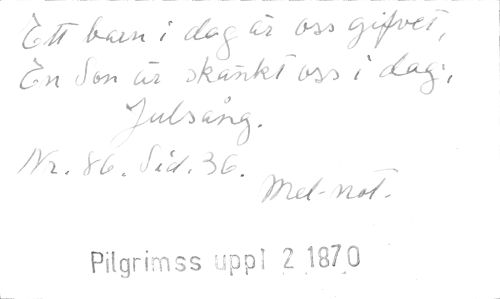 Ett barn i dag är oss gifvet,
En Son är skänkt oss i dag;
Julsång.
Nr. 86. Sid. 36.
Mel-not.
Pilgrimss uppl 2 1870